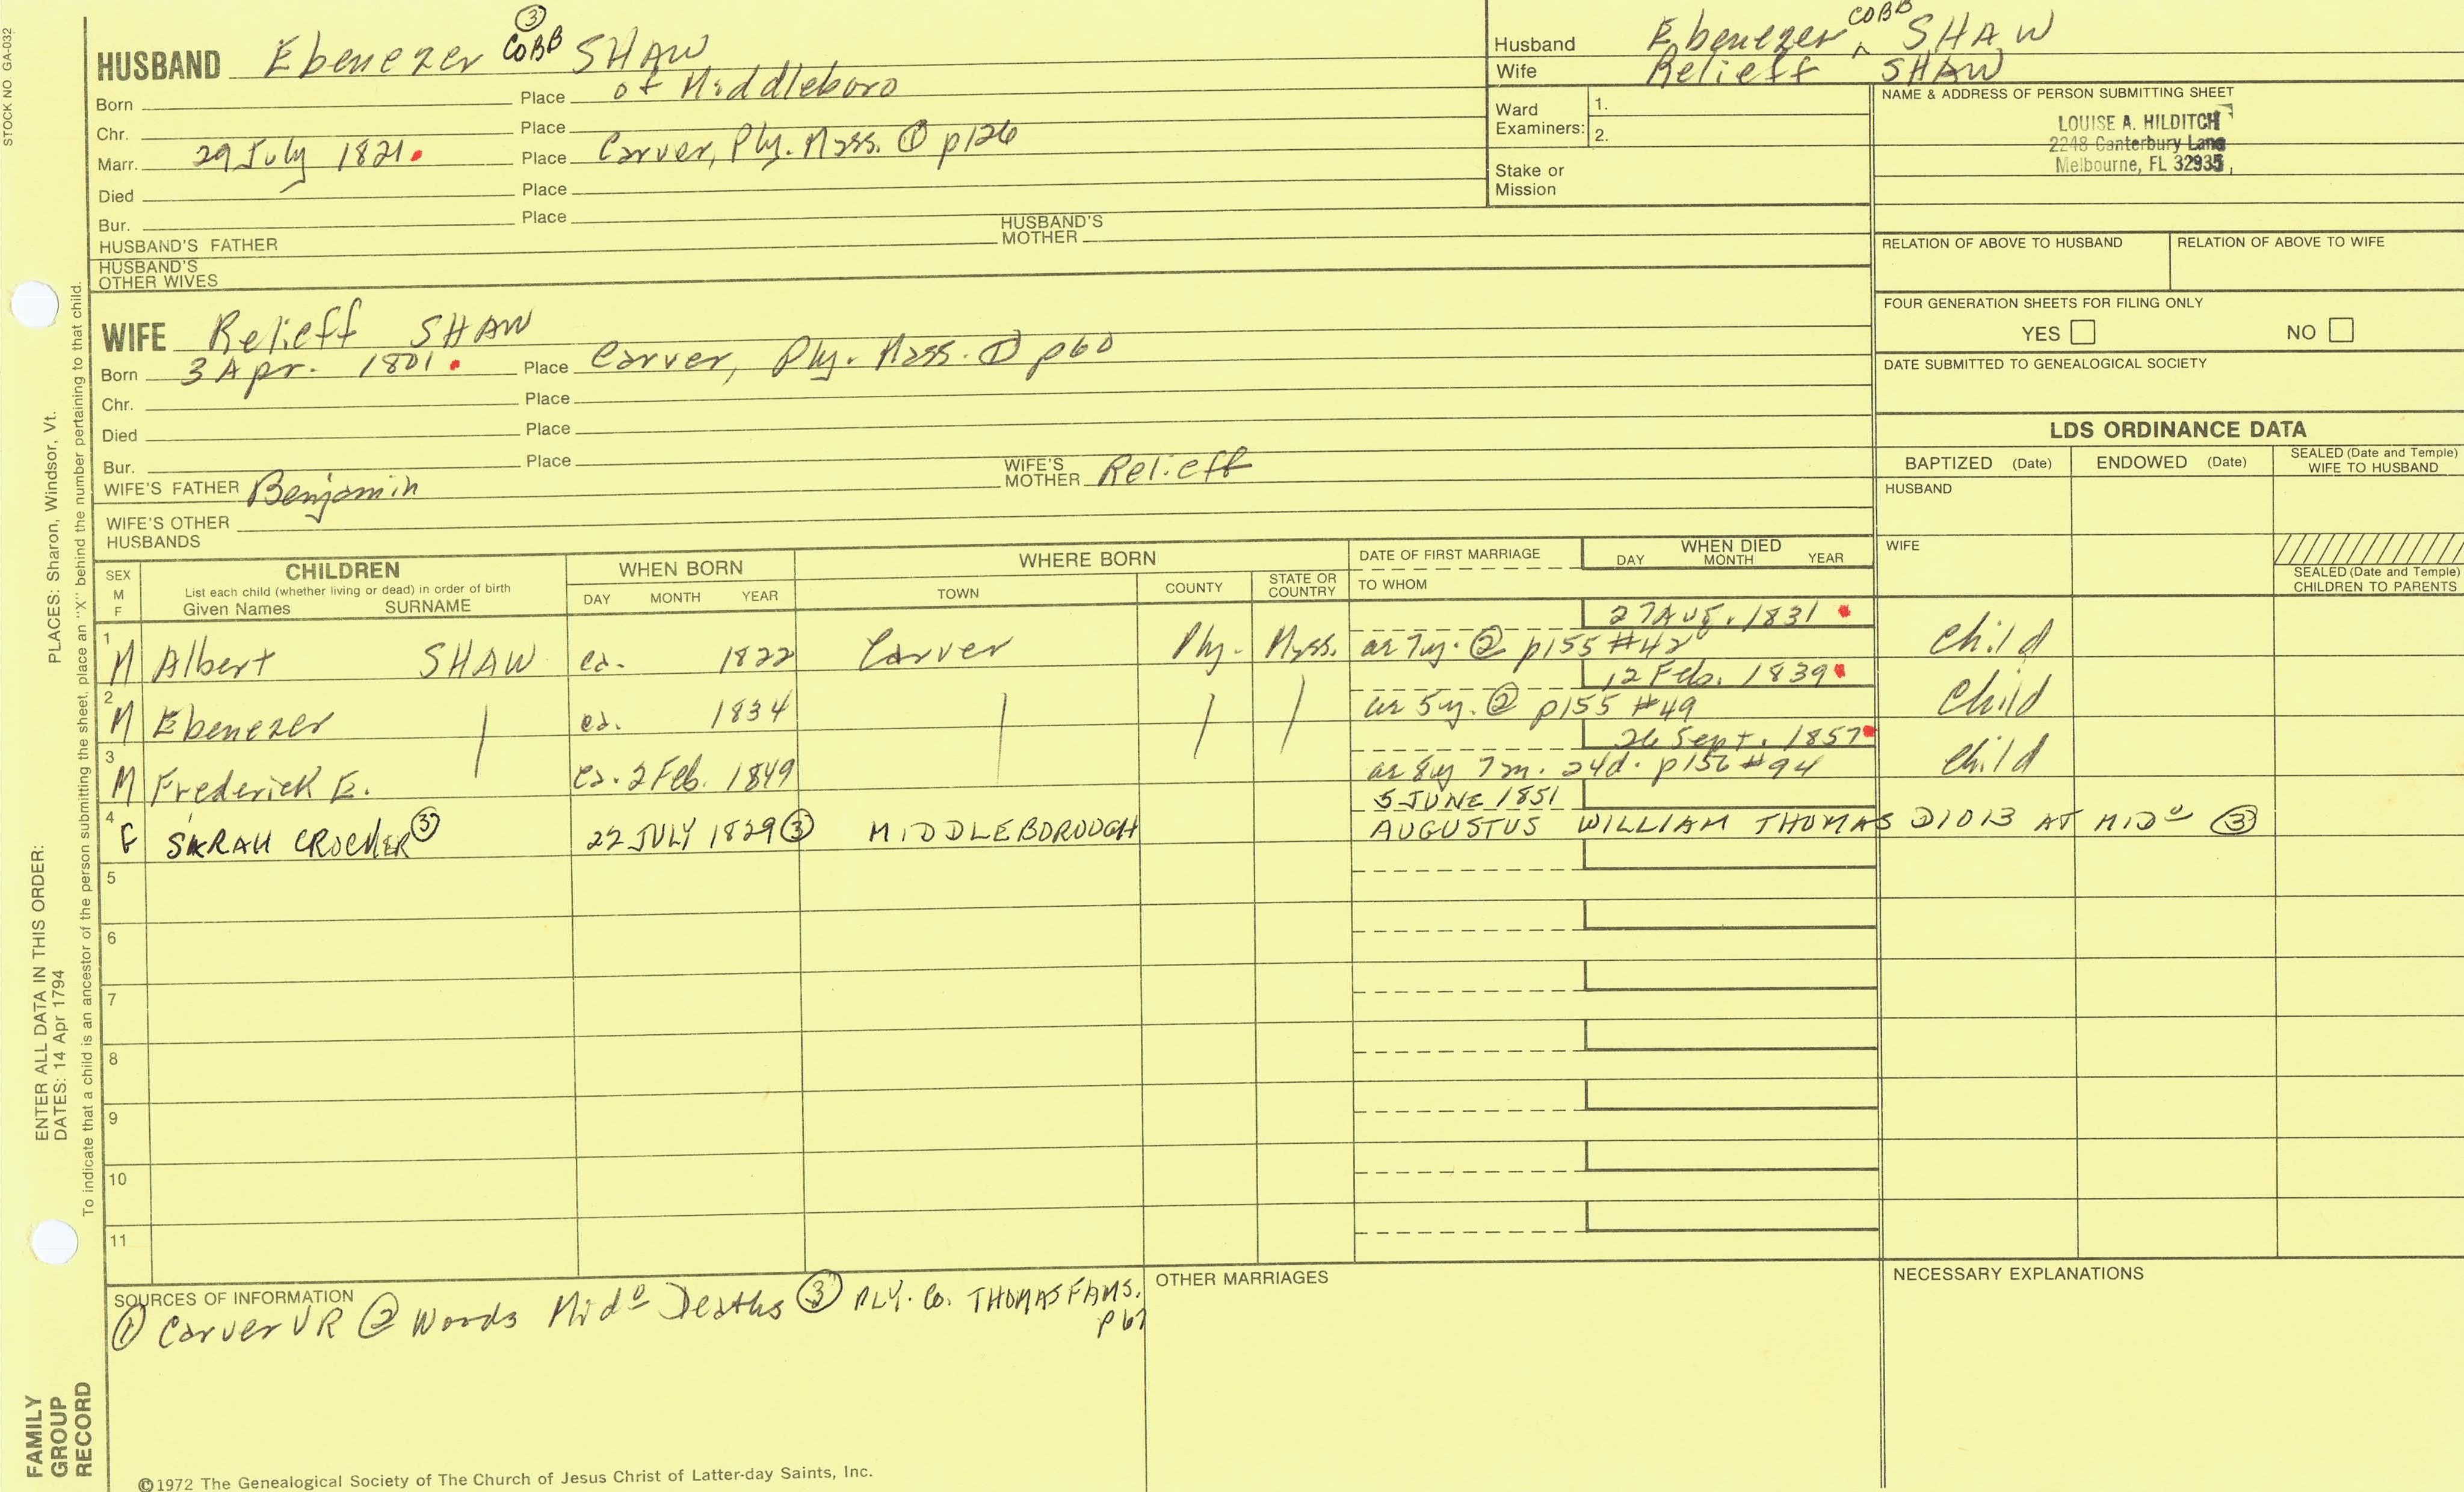 STOCK NO GA-032
③
HUSBAND Ebenezer COBB SHAW
Born Place of Middleboro
Chr. Place
Marr. 29 July 1821. Place Carver, Ply. Mass. ① p126
Died Place
Bur. Place
HUSBAND'S FATHER HUSBAND'S MOTHER
HUSBAND'S OTHER WIVES
WIFE Relieff SHAW
Born 3 Apr. 1801. Place Carver, Ply. Mass. ① p60
Chr. Place
Died Place
Bur. Place
WIFE'S FATHER Benjamin WIFE'S MOTHER Relieff
WIFE'S OTHER HUSBANDS
Husband Ebenezer ^ COBB SHAW
Wife Relieff SHAW
Ward Examiners: 1.
2.
Stake or Mission
NAME & ADDRESS OF PERSON SUBMITTING SHEET
LOUISE A. HILDITCH
2248 Canterbury Lane
Melbourne, FL 32935
RELATION OF ABOVE TO HUSBAND RELATION OF ABOVE TO WIFE
FOUR GENERATION SHEETS FOR FILING ONLY
YES NO
DATE SUBMITTED TO GENEALOGICAL SOCIETY
LDS ORDINANCE DATA
BAPTIZED (Date) ENDOWED (Date) SEALED (Date and Temple) WIFE TO HUSBAND
HUSBAND
WIFE
SEALED (Date and Temple) CHILDREN TO PARENTS
SEX M F
CHILDREN
List each child (whether living or dead) in order of birth
Given Names SURNAME
WHEN BORN
DAY MONTH YEAR
WHERE BORN
TOWN COUNTY STATE OR COUNTRY
DATE OF FIRST MARRIAGE
TO WHOM
WHEN DIED
DAY MONTH YEAR
27 Aug. 1831
1 M Albert SHAW ca. 1822 Carver Ply. Mass. ae 7y. ② p155 #42 Child
12 Feb. 1839
2 M Ebenezer ca. 1834 ae 5y. ② p155 #49 Child
26 Sept. 1857
3 M Frederick E. ca. 2 Feb. 1849 ae 8y 7m. 24d. p156 #94 Child
5 JUNE 1851
4 F SARAH CROCKER ③ 22 JULY 1829 ③ MIDDLEBOROUGH AUGUSTUS WILLIAM THOMAS D1013 AT MIDº ③
5
6
7
8
9
10
11
SOURCES OF INFORMATION
① Carver VR ② Woods Midº Deaths ③ PLY. Co. THOMAS FAMS.
p67
OTHER MARRIAGES
NECESSARY EXPLANATIONS
©1972 The Genealogical Society of The Church of Jesus Christ of Latter-day Saints, Inc.
FAMILY
GROUP
RECORD
ENTER ALL DATA IN THIS ORDER:
DATES: 14 Apr 1794
PLACES: Sharon, Windsor, Vt.
To indicate that a child is an ancestor of the person submitting the sheet, place an "X" behind the number pertaining to that child.